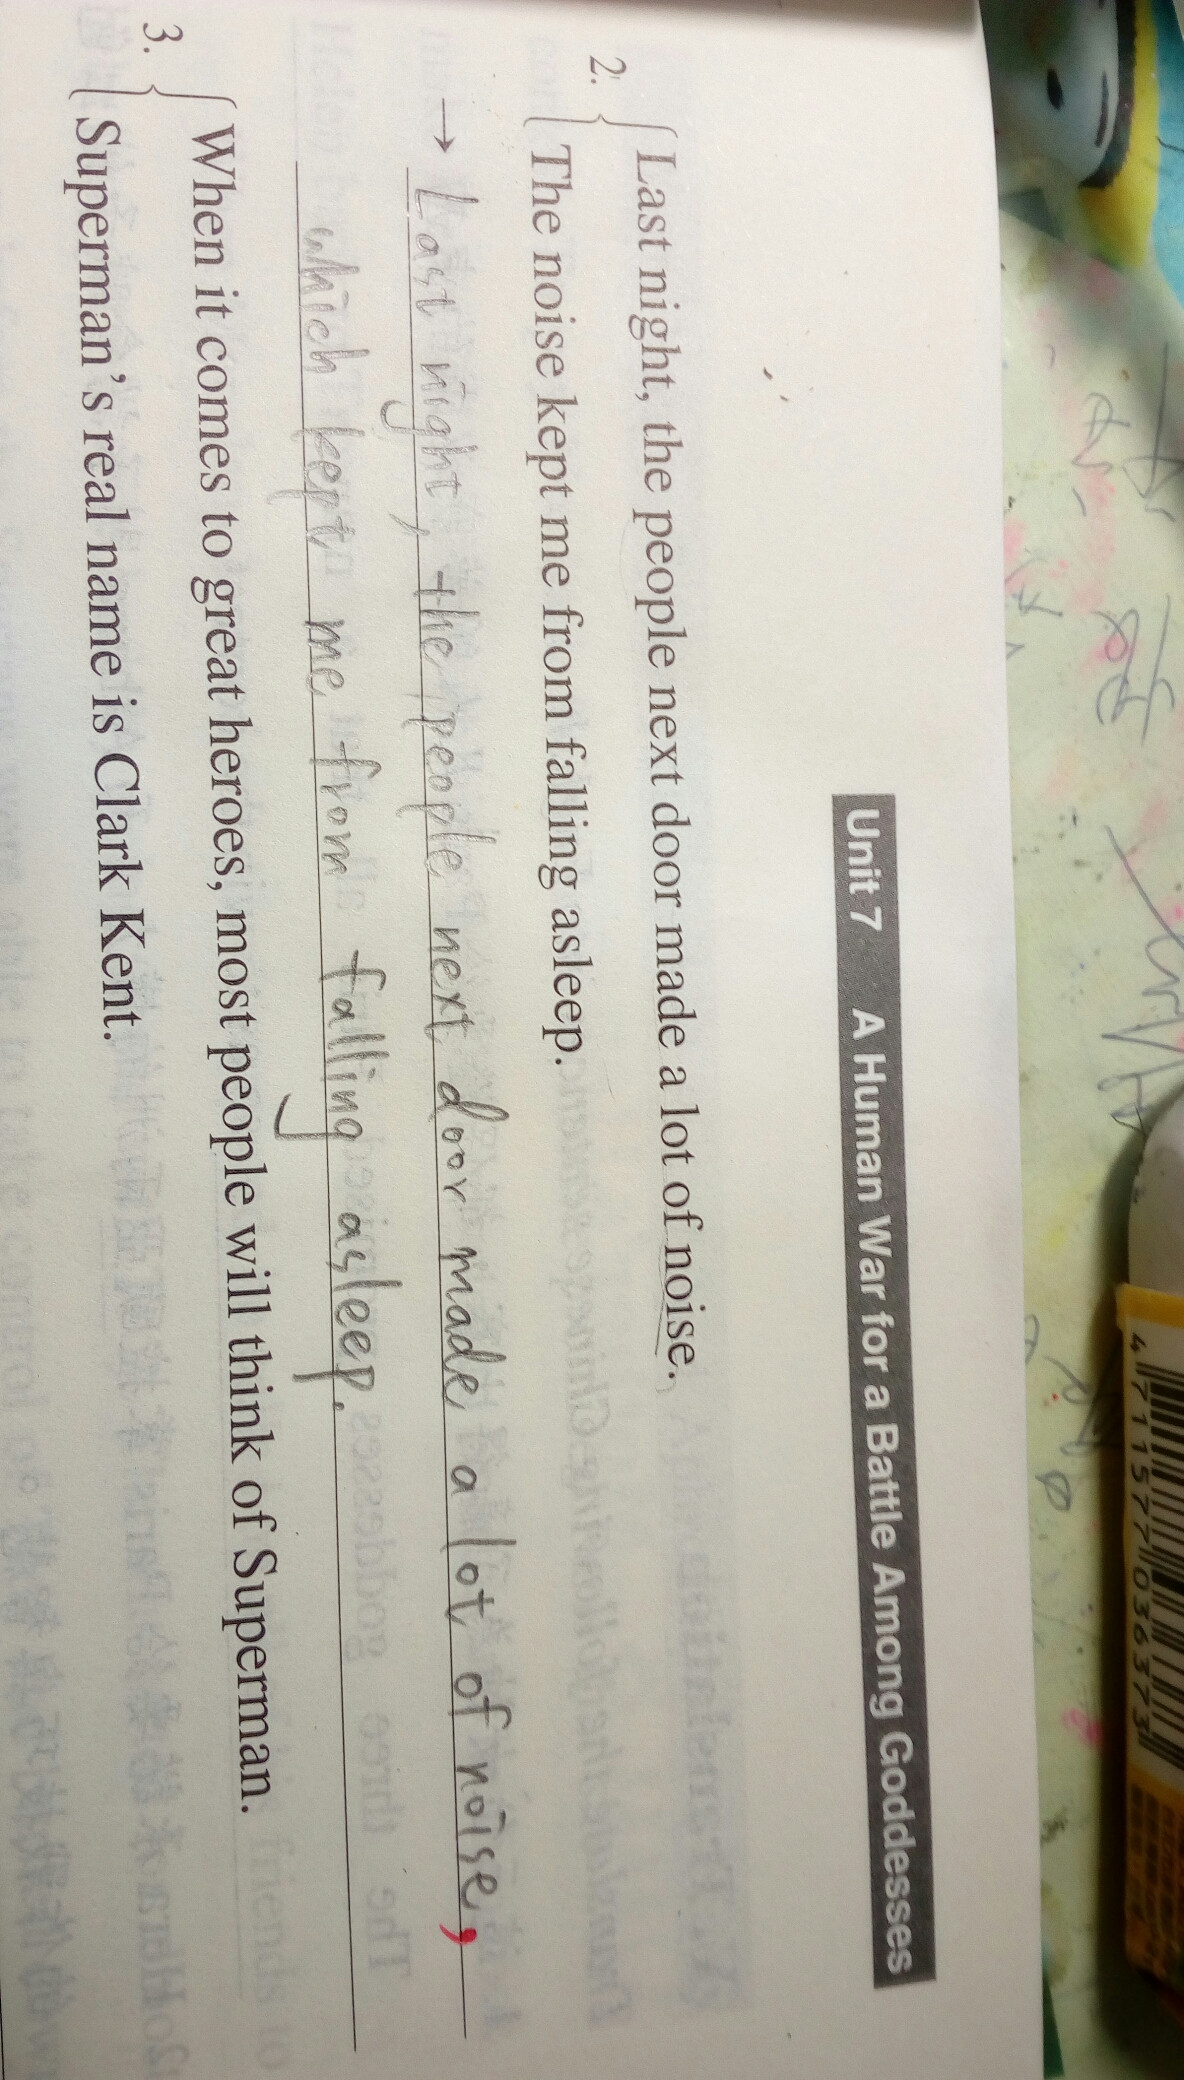 Unit 7 A Human War for a Battle Among Goddesses
2. Last night, the people next door made a lot of noise.
The noise kept me from falling asleep.
→ Last night, the people next door made a lot of noise,
which kept me from falling asleep.
3. When it comes to great heroes, most people will think of Superman.
Superman's real name is Clark Kent.
4 711577 036373